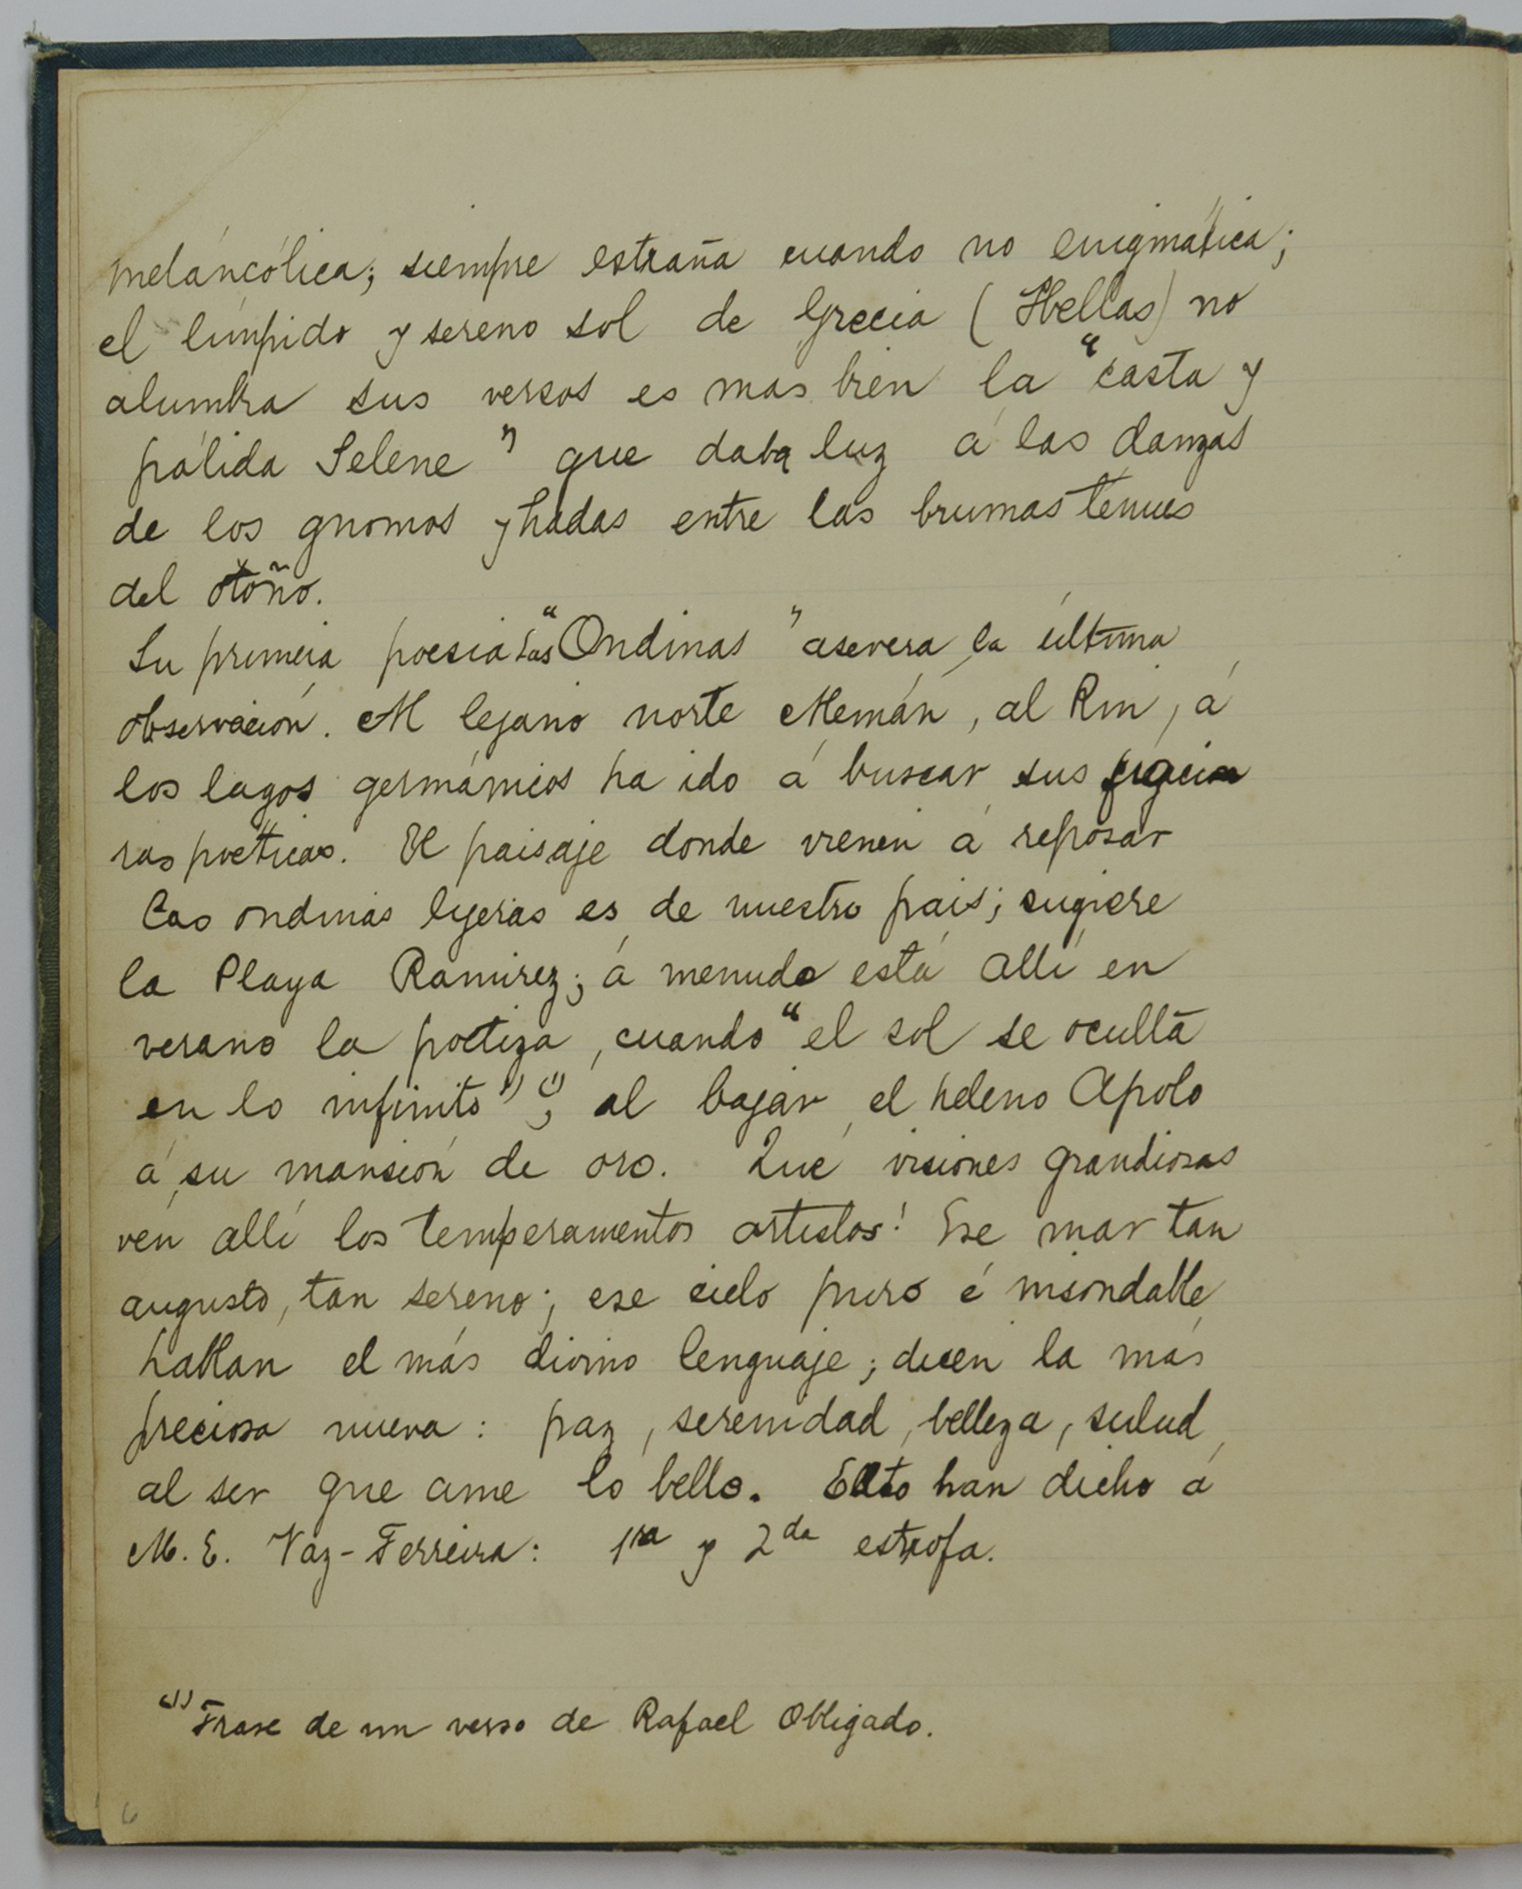 meláncólica; siempre estraña cuando no enigmática;
el límpido y sereno sol de Grecia (Hellas) no
alumbra sus versos es mas bien la "casta y
pálida Selene" que daba luz á las danzas
de los gnomos y hadas entre las brumas ténues
del otoño.
Su primera poesia "Las Ondinas" asevera la última
observación. Al lejano norte Alemán, al Rin, á
los lagos germánicos ha ido á buscar sus figu
ras poéticas. El paisaje donde vienen á reposar
las ondinas ligeras es de nuestro pais; sugiere
la Playa Ramirez; á menudo está allí en
verano la poetiza, cuando "el sol se oculta
en lo infinito" (1); al bajar el heleno Apolo
á su mansión de oro. Qué visiones grandiosas
vén allí los temperamentos artistas! Ese mar tan
augusto, tan sereno; ese cielo puro é insondable
hablan el más divino lenguaje; dicen la más
preciosa nueva: paz, serenidad, belleza, salud,
al ser que ame lo bello. Esto han dicho á
M. E. Vaz-Ferreira: 1ra y 2da estrofa.
(1) Frase de un verso de Rafael Obligado.
6